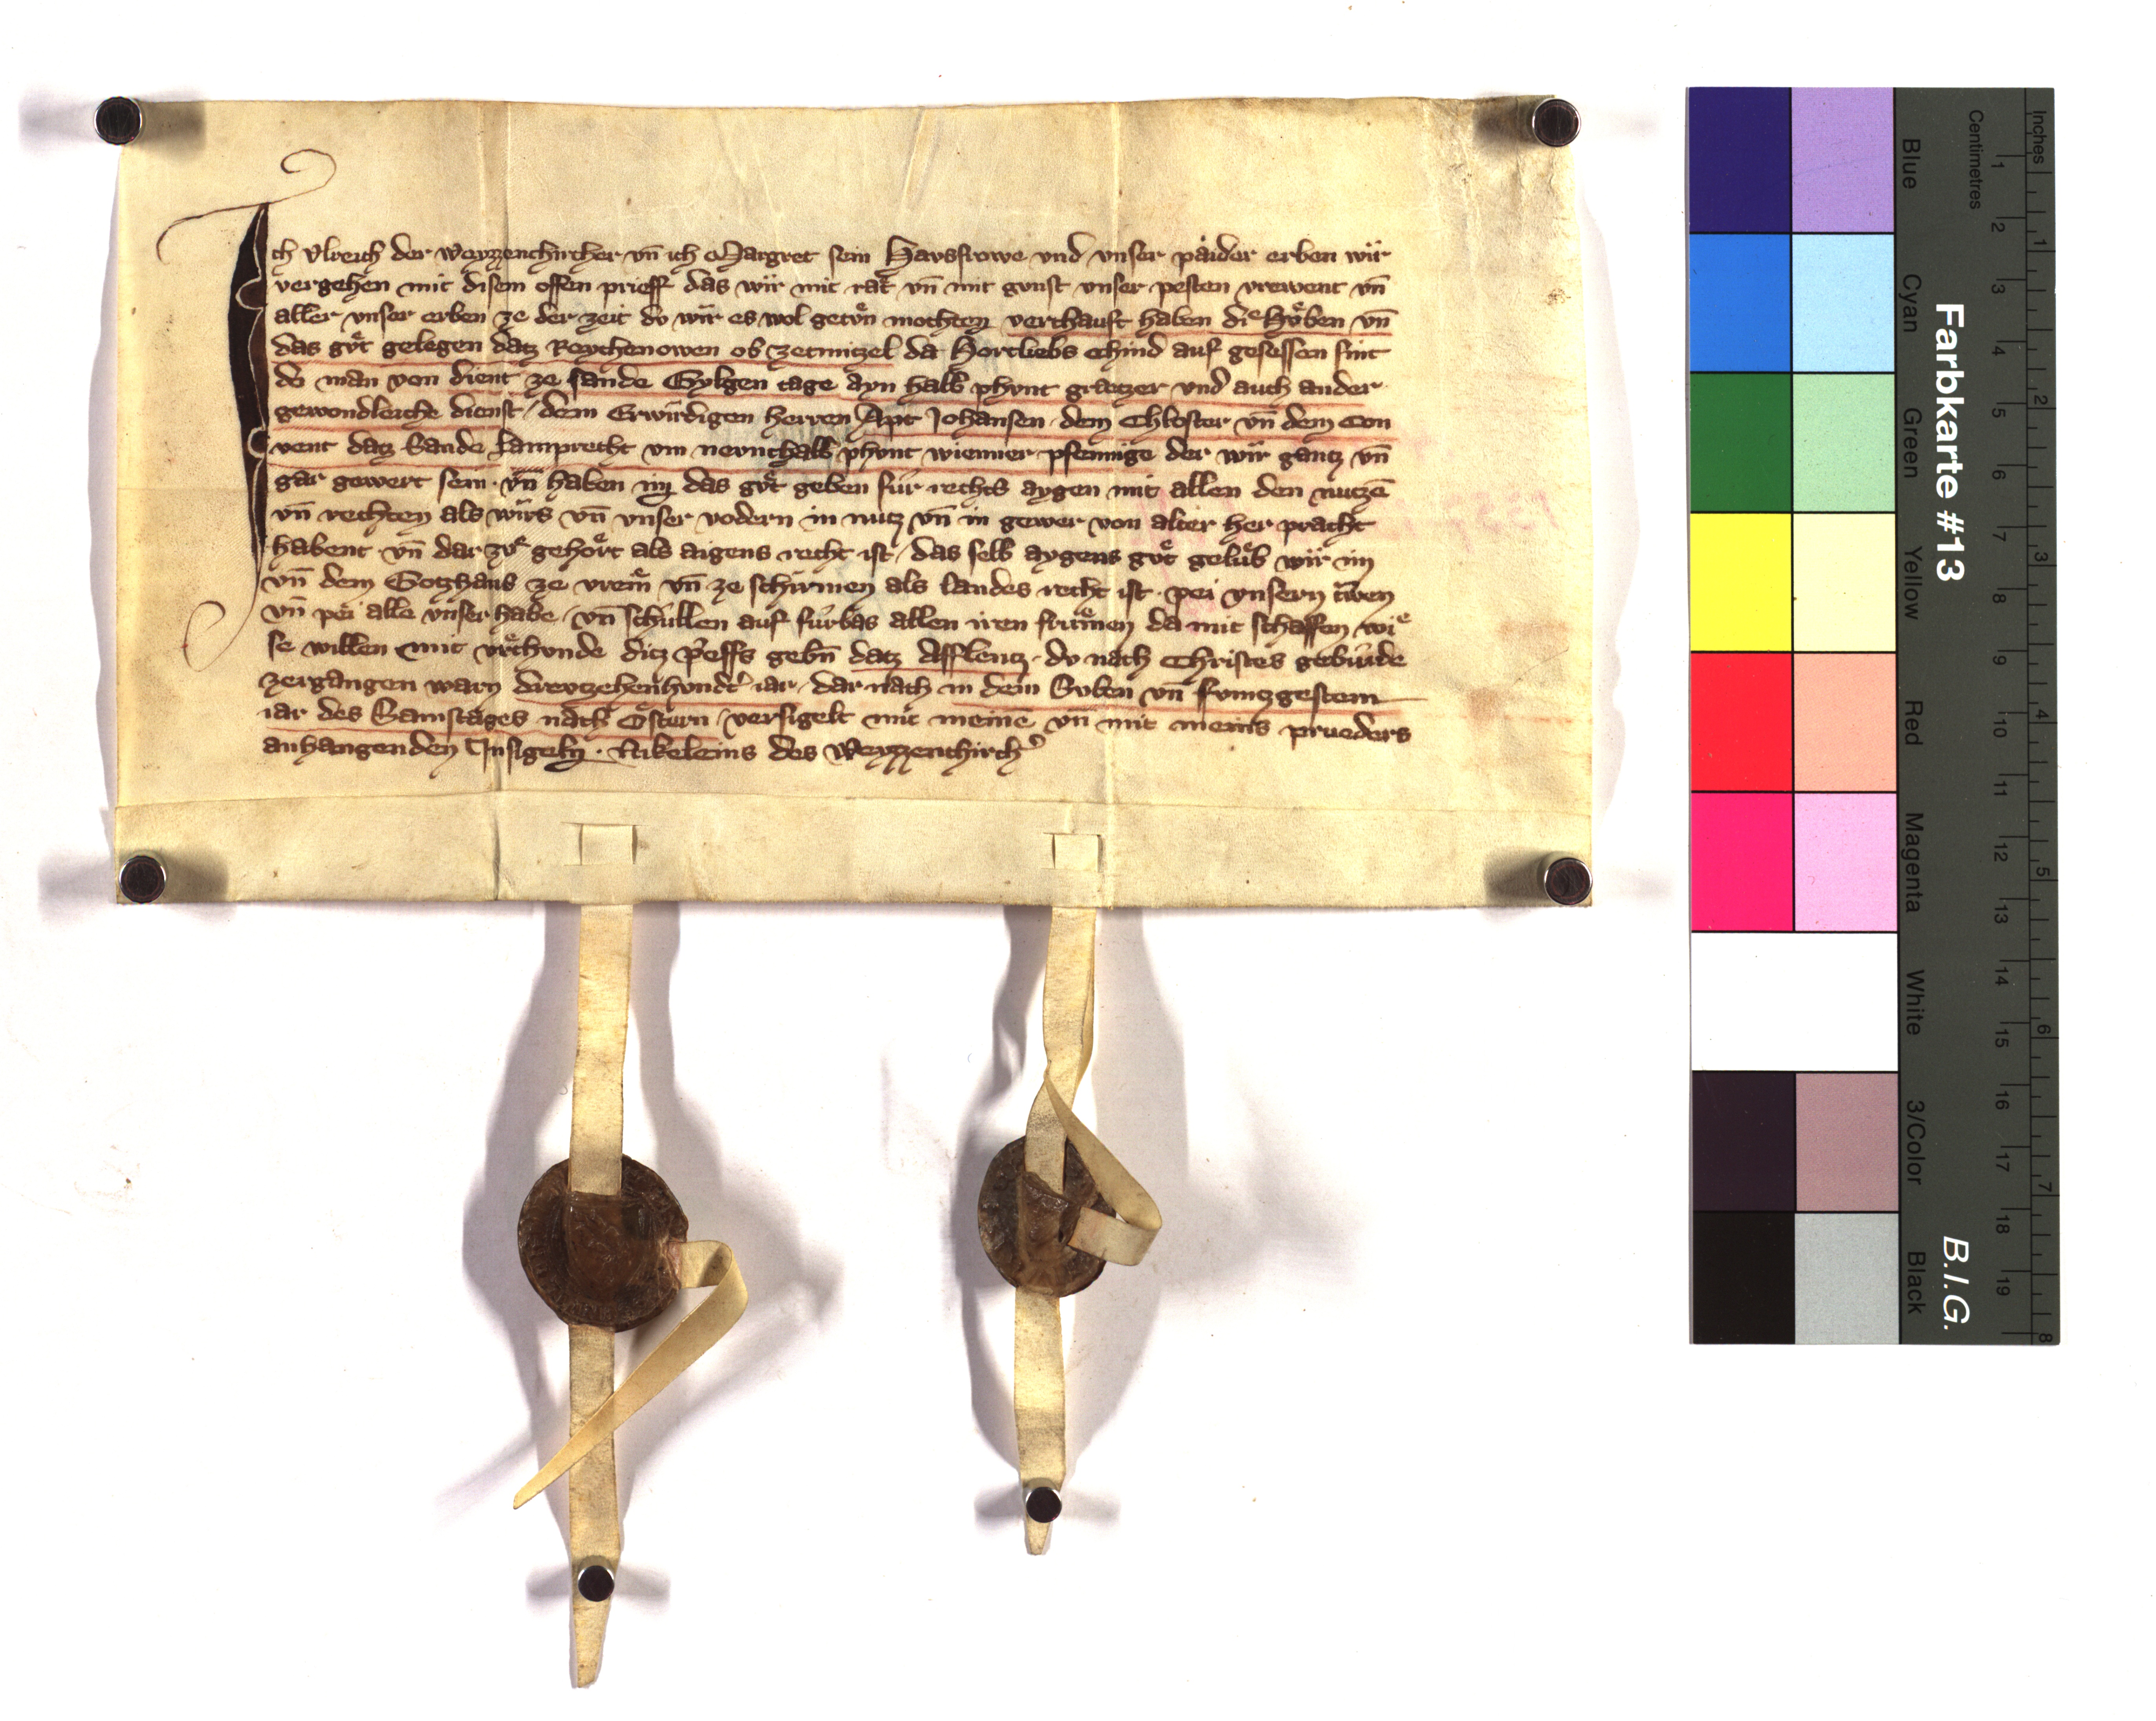 Ich Vlreich der Weyzzenchircher vn̄ ich Margret sein Havsfrowe vnd vnser paider erben wir
vergehen mit disem offen prieff das wir mit rat vn̄ mit gvnst vnser pesten vrewent vn̄
aller vnser erben ze der zeit do wir es wol getvͤn mochten verchauft haben diͤ Hvͤben vn̄
das gvͤt gelegen datz Reychenowen ob zetmitzel da Hortliebs chind auf gesessen sint
do man von dient ze sande Gylgen tage ayn halb phvnt gretzer vnd auch ander
gewondleiche dienst / dem Erwirdigen herren Apt Johansen dem Chloster vn̄ dem Con
vent datz Sande Lamprecht vm nevnthalb phvnt wienner pfennige der wir gantz vn̄
gar gewert sein · vn̄ haben im das gvͤt geben fur rechts aygen mit allen den nutzē
vn̄ rechten als wirs vn̄ vnser vodern in nutz vn̄ in gewer von alter her pracht
habent · vn̄ dar zvͤ gehoͤrt als aigens recht ist / das selb aygens gvͤt gelub wir im
vn̄ dem Gotzhaus ze vrein vn̄ ze schirmen als landes recht ist · pei vnsern triwen
vn̄ pei alle vnser habe / vn̄ schullen auf furbas allen iren frumen da mit schaffen wiͤ
se willen mit vrchvnde ditz p̓effs gebn̄ datz Afflentz · do nach Christes geburde
zergangen warn drevzehenhvndt̓ iar / dar nach in dem Syben vn̄ fvmtzgestem
iar des Samstages nach Ostern / versigelt mit meinē vn̄ mit meins prueders
anhangenden Insigeln · Nikeleins des Weyzzenchirch̓
Farbkarte #13
B.I.G.
Inches
1 2 3 4 5 6 7 8
Centimetres
1 2 3 4 5 6 7 8 9 10 11 12 13 14 15 16 17 18 19
Blue
Cyan
Green
Yellow
Red
Magenta
White
3/Color
Black